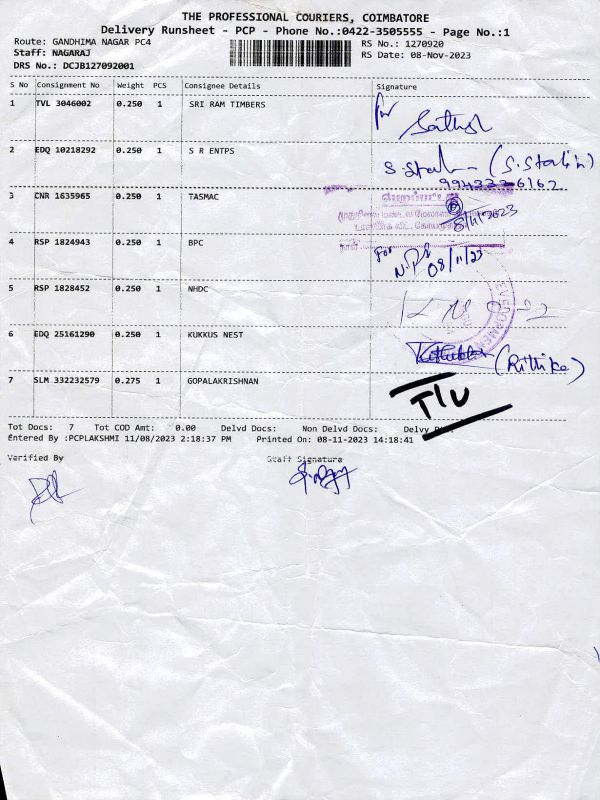 THE PROFESSIONAL COURIERS, COIMBATORE
Delivery Runsheet - PCP - Phone No.:0422-3505555 - Page No.:1
Route: GANDHIMA NAGAR PC4 RS No.: 1270920
Staff: NAGARAJ RS Date: 08-Nov-2023
DRS No.: DCJB127092001
S No Consignment No Weight PCS Consignee Details Signature
1 TVL 3046002 0.250 1 SRI RAM TIMBERS For
2 EDQ 10218292 0.250 1 S R ENTPS (S.Stalin)
3 CNR 1635965 0.250 1 TASMAC 8/11/2023
4 RSP 1824943 0.250 1 BPC For
08/11/23
5 RSP 1828452 0.250 1 NHDC
6 EDQ 25161290 0.250 1 KUKKUS NEST (Rithika)
7 SLM 332232579 0.275 1 GOPALAKRISHNAN
Tot Docs: 7 Tot COD Amt: 0.00 Delvd Docs: Non Delvd Docs: Delvy
Entered By :PCPLAKSHMI 11/08/2023 2:18:37 PM Printed On: 08-11-2023 14:18:41
Verified By Staff Signature